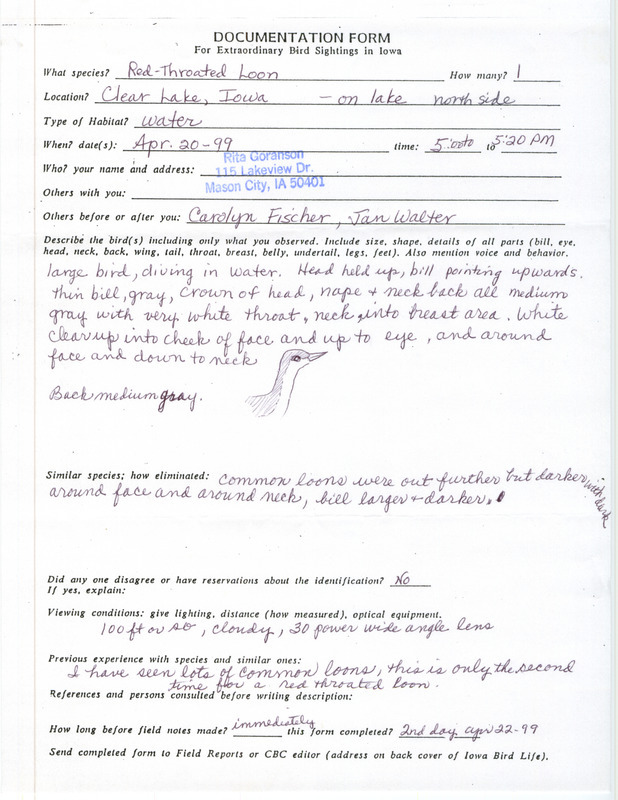 DOCUMENTATION FORM
For Extraordinary Bird Sightings in Iowa
What species? Red-Throated Loon How many? 1
Location? Clear Lake, Iowa - on lake north side
Type of Habitat? water
When? date(s): Apr. 20-99 time: 5:00 to to 5:20 PM
Rita Goranson
Who? your name and address: 115 Lakeview Dr.
Mason City, IA 50401
Others with you:
Others before or after you: Carolyn Fischer, Jan Walter
Describe the bird(s) including only what you observed. Include size, shape, details of all parts (bill, eye,
head, neck, back, wing, tail, throat, breast, belly, undertail, legs, feet). Also mention voice and behavior.
large bird, diving in water. Head held up, bill pointing upwards.
thin bill, gray, crown of head, nape + neck back all medium
gray with very white throat, neck into breast area. White
clear up into cheek of face and up to eye, and around
face and down to neck
Back medium gray.
Similar species; how eliminated: common loons were out further but darker with dark
around face and around neck, bill larger + darker.
Did any one disagree or have reservations about the identification? No
If yes, explain:
Viewing conditions: give lighting, distance (how measured), optical equipment.
100 ft or so, cloudy, 30 power wide angle lens
Previous experience with species and similar ones:
I have seen lots of common loons, this is only the second
time for a red throated loon.
References and persons consulted before writing description:
How long before field notes made? immediately this form completed? 2nd day Apr 22-99
Send completed form to Field Reports or CBC editor (address on back cover of Iowa Bird Life).